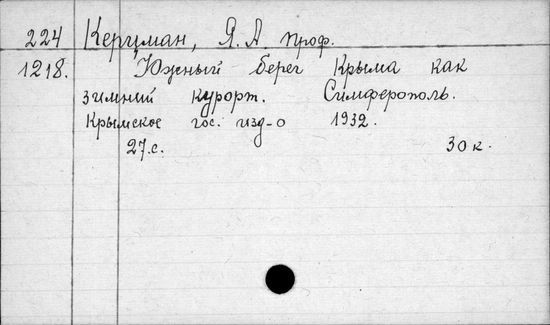 224 Керцман, Я. А проф.
1218. Южный берег Крыма как
зимний курорт. Симферополь.
Крымское гос. изд-о 1932.
27.с. 30 к.